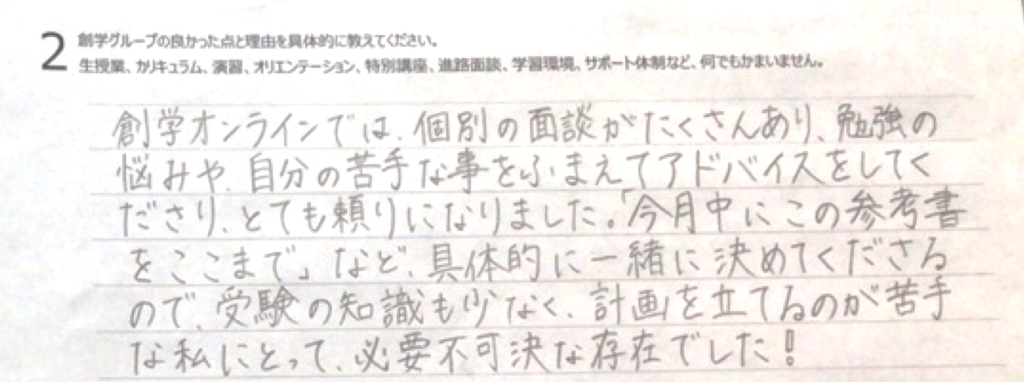 2 創学グループの良かった点と理由を具体的に教えてください。
生授業、カリキュラム、演習、オリエンテーション、特別講座、進路面談、学習環境、サポート体制など、何でもかまいません。
創学オンラインでは、個別の面談がたくさんあり、勉強の
悩みや、自分の苦手な事をふまえてアドバイスをしてく
ださり、とても頼りになりました。「今月中にこの参考書
をここまで」など、具体的に一緒に決めてくださる
ので、受験の知識も少なく、計画を立てるのが苦手
な私にとって、必要不可決な存在でした!